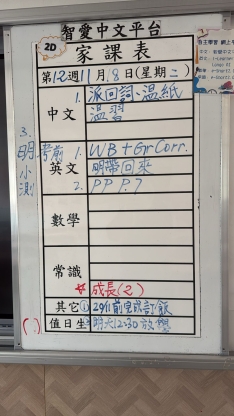 智愛中文平台
2D
家課表
第12週11月8日(星期二)
中文
1. 派回詞、溫紙
2. 溫習
3. 明考前小測
英文
1. W/B + Gr Corr.
明帶回來
2. PP P.7
數學
常識
☆ 成長(2)
其它 ① 29/11前完成訂飯
值日生 明天12:30放學
( )